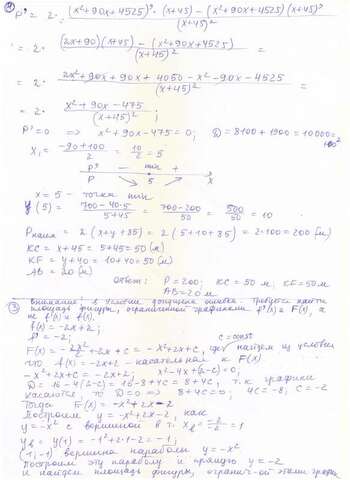 ④ P' = 2 · (x²+90x+4525)' · (x+45) − (x²+90x+4525)(x+45)' / (x+45)² =
= 2 · (2x+90)(x+45) − (x²+90x+4525) / (x+45)² =
= 2 · 2x²+90x+90x+4050−x²−90x−4525 / (x+45)² =
= 2 · x²+90x−475 / (x+45)² ;
P'=0 ⇒ x²+90x−475=0; D=8100+1900=10000=100²
x₁ = −90+100 / 2 = 10/2 = 5
P' − min +
P 5 x
x=5 − точка min
y(5) = 700−40·5 / 5+45 = 700−200 / 50 = 500/50 = 10
Pнаим = 2(x+y+85) = 2(5+10+85) = 2·100=200 (м)
KC = x+45 = 5+45=50 (м)
KF = y+40 = 10+40=50 (м)
AB = 20 (м)
Ответ: P=200; KC=50 м; KF=50м
AB=20 м
③ Внимание: в условии допущена ошибка. Требуется найти
площадь фигуры, ограниченной графиками f'(x) и F(x), а
не f'(x) и f(x).
f(x) = −2x+2;
f' = −2;
F(x) = −2x²/2 + 2x + C = −x²+2x+C, где C=const найдем из условия
что f(x) = −2x+2 − касательная к F(x)
−x²+2x+C = −2x+2; x²−4x+(2−C)=0
D = 16−4(2−C) = 16−8+4C = 8+4C, т.к. графики
касаются, то D=0 ⇒ 8+4C=0; 4C=−8; C=−2
Тогда F(x) = −x²+2x−2
Построим y=−x²+2x−2, как
y=−x² с вершиной в т. xв = −2/−2 = 1
yв = y(1) = −1²+2·1−2 = −1
(1;−1) вершина параболы y=−x²
построим эту параболу и прямую y=−2
и найдем площадь фигуры, огранич-ой этими график